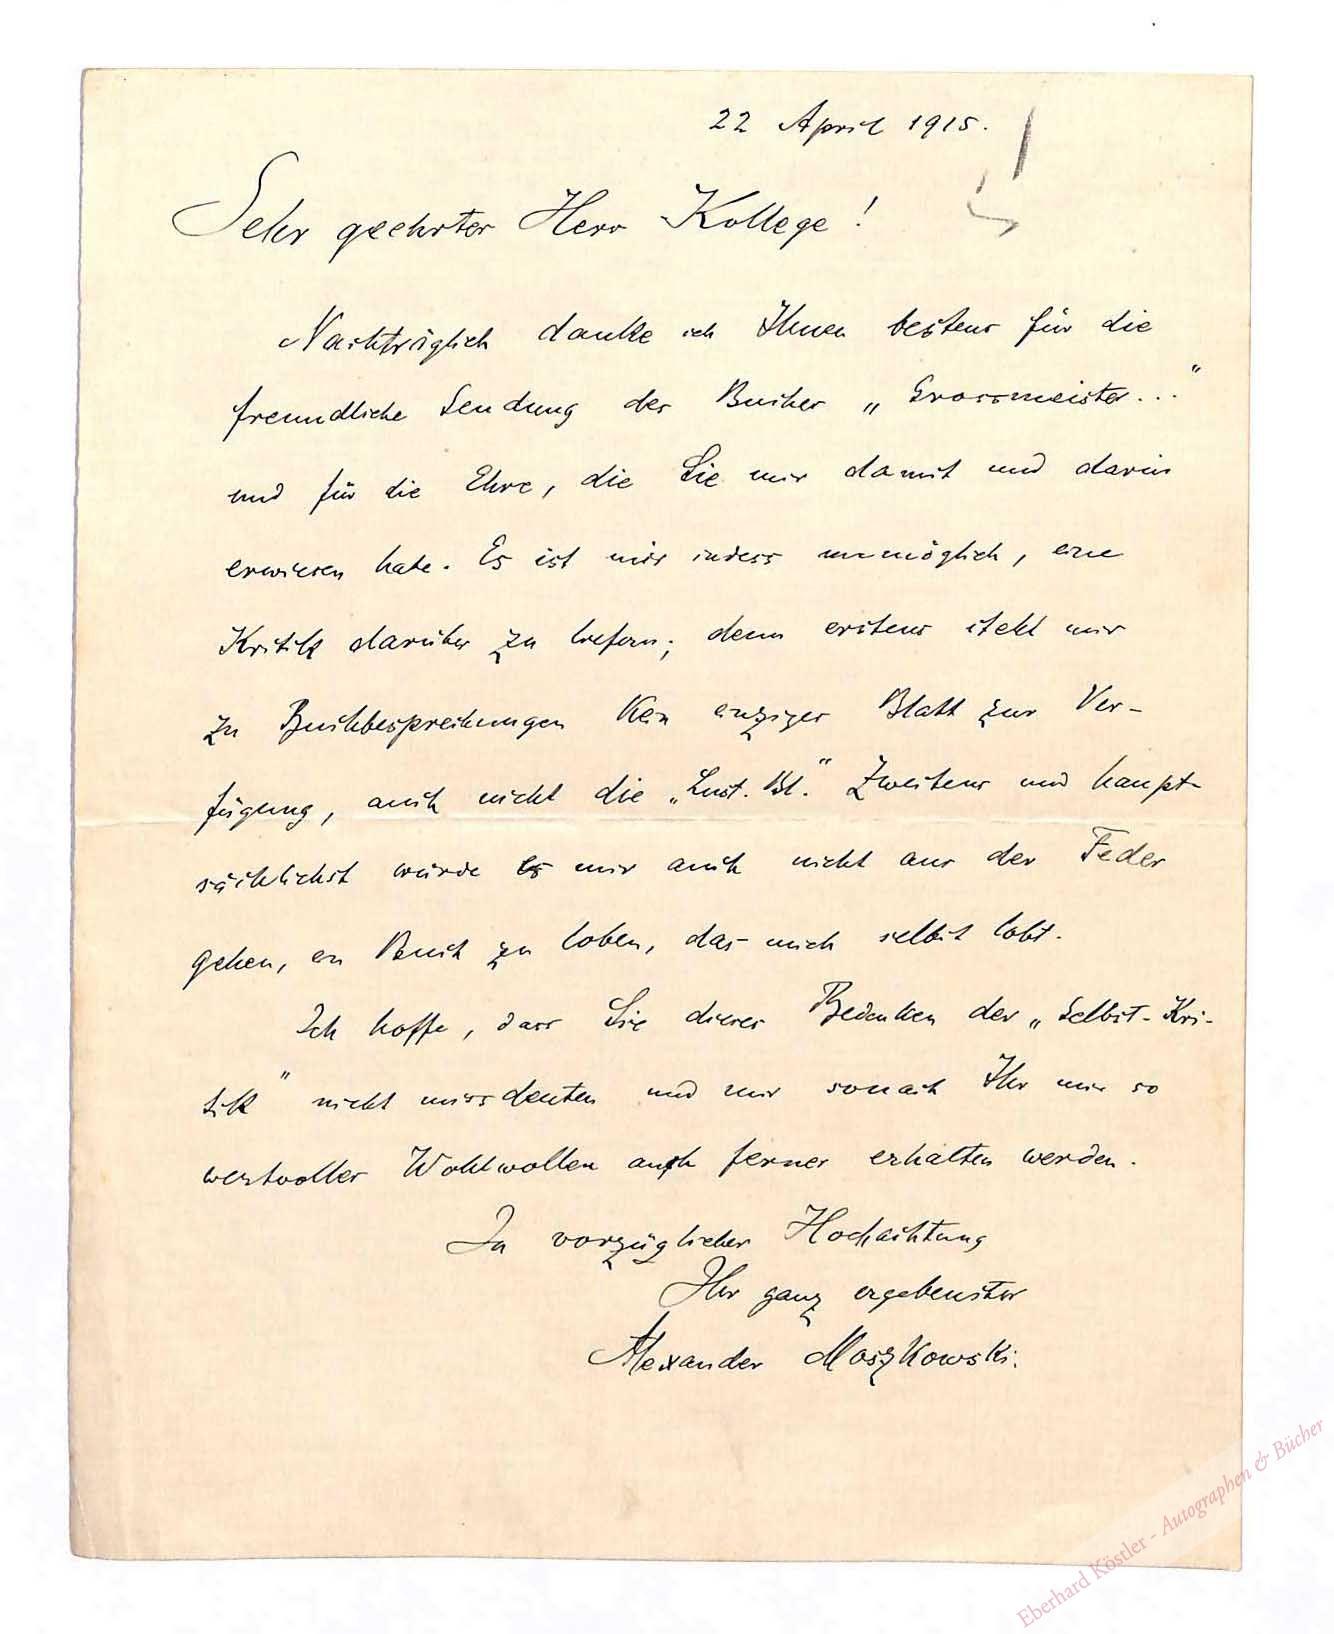 22 April 1915.
Sehr geehrter Herr Kollege!
Nachträglich danke ich Ihnen bestens für die
freundliche Sendung des Buches „Grossmeister..."
und für die Ehre, die Sie mir damit und darin
erwiesen habe. Es ist mir indess unmöglich, eine
Kritik darüber zu liefern; denn erstens steht mir
zu Buchbesprechungen kein einziges Blatt zur Ver-
fügung, auch nicht die „Lust. Bl." Zweitens und haupt-
sächlichst würde es mir auch nicht aus der Feder
gehen, ein Buch zu loben, das mich selbst lobt.
Ich hoffe, dass Sie dieses Bedenken der „Selbst-Kri-
tik" nicht missdeuten und mir sonach Ihr mir so
wertvolles Wohlwollen auch ferner erhalten werden.
In vorzüglicher Hochachtung
Ihr ganz ergebenster
Alexander Moszkowski.
Eberhard Köstler - Autographen & Bücher